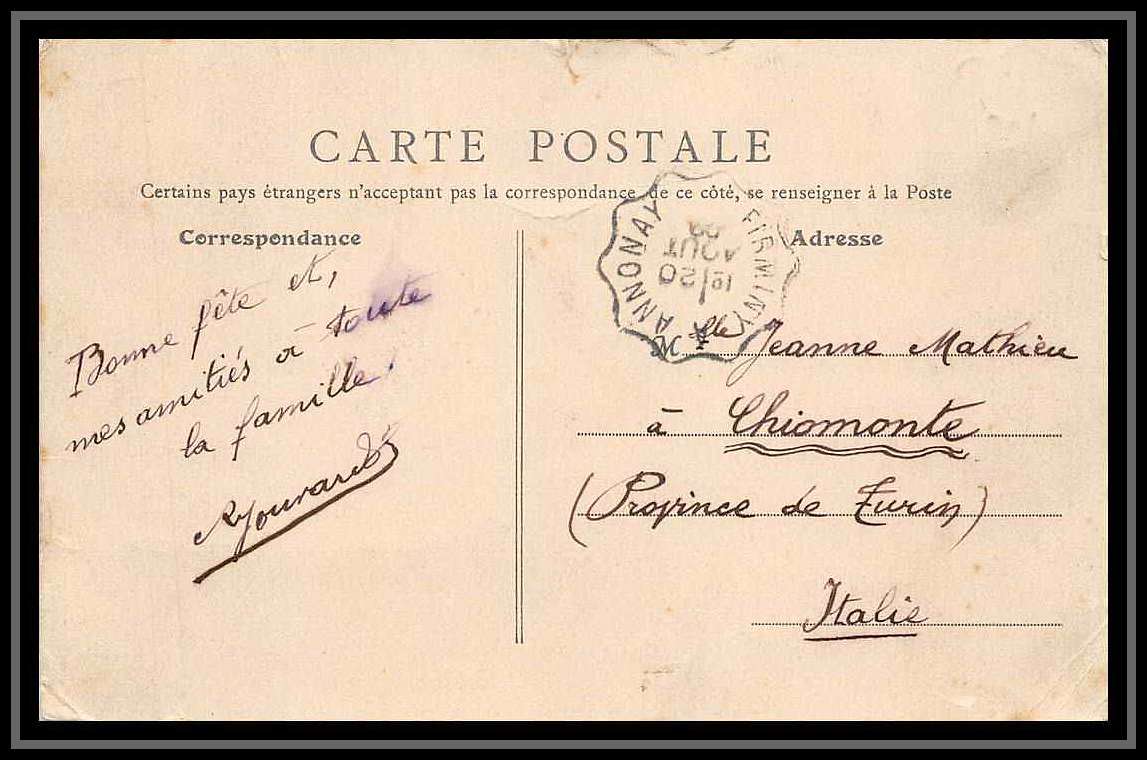 CARTE POSTALE
Certains pays étrangers n'acceptent pas la correspondance de ce côté, se renseigner à la Poste
Correspondance
Bonne fête et,
mes amitiés à toute
la famille!
Adresse
ANNONAY A FIRMINY
1º/20
AOUT
09
Mlle Jeanne Mathieu
à Chiomonte
(Province de Turin)
Italie